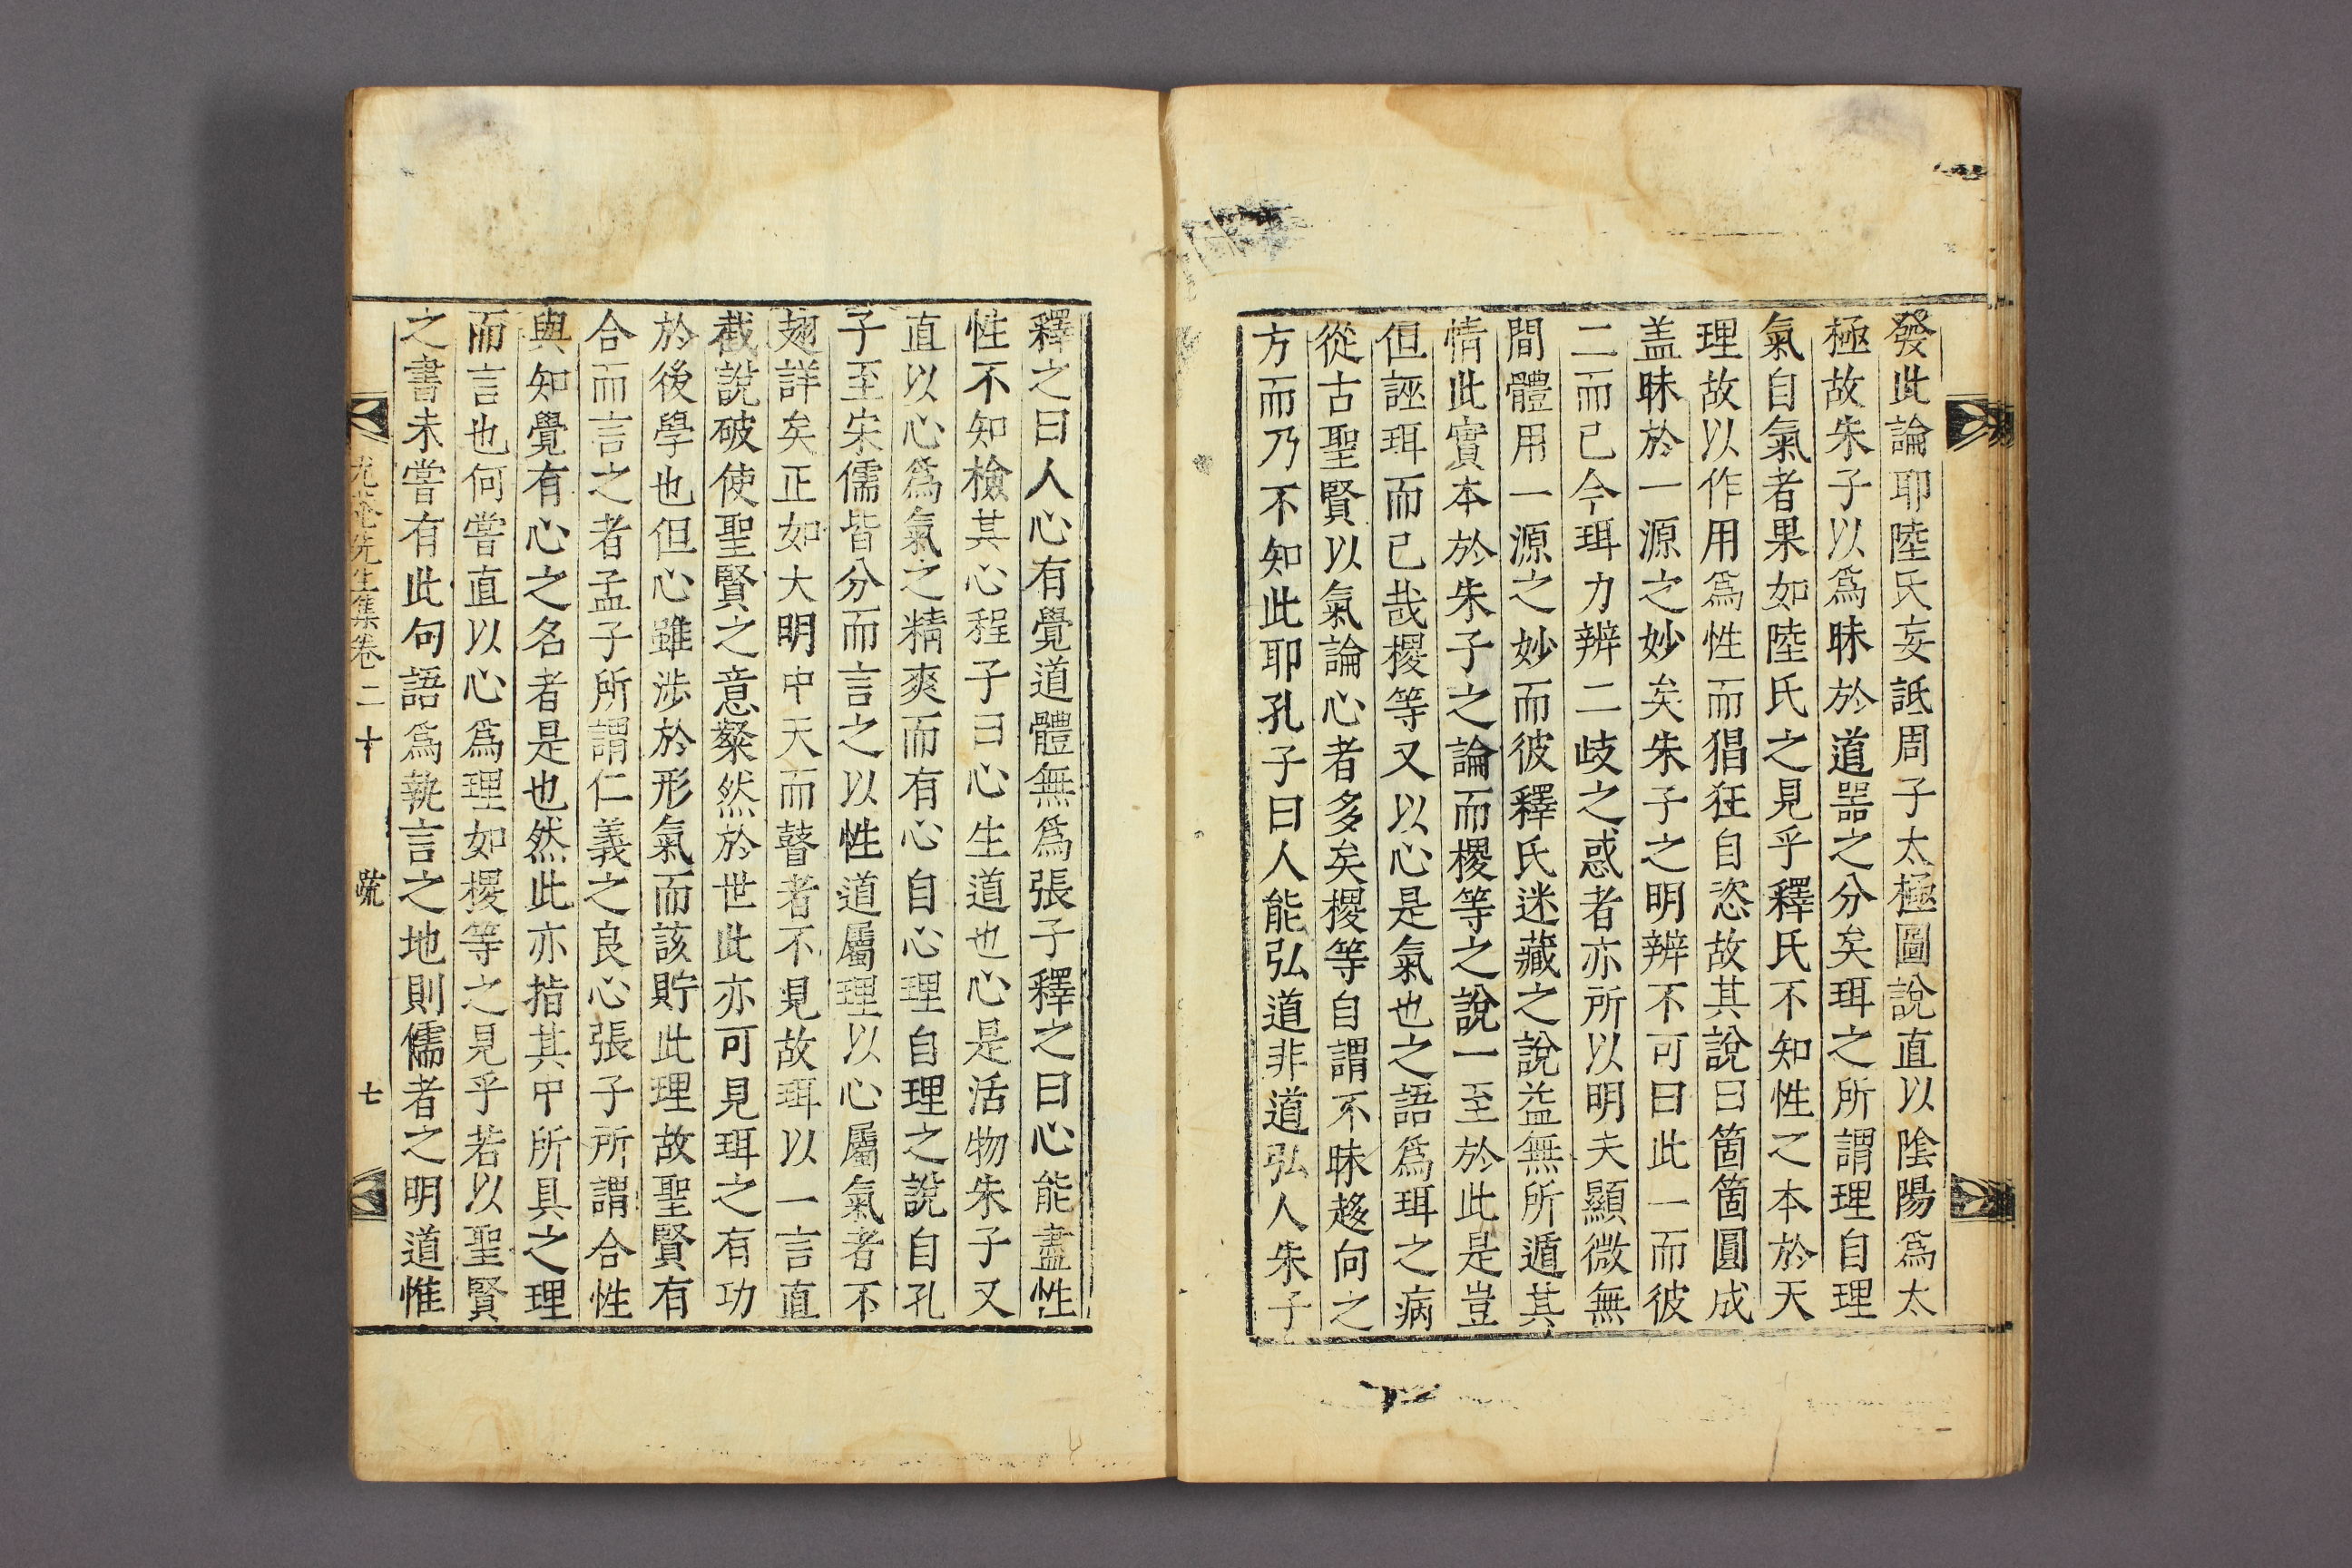 發此論耶陸氏妄詆周子太極圖說直以陰陽爲太
極故朱子以爲昧於道器之分矣珥之所謂理自理
氣自氣者果如陸氏之見乎釋氏不知性之本於天
理故以作用爲性而猖狂自恣故其說曰箇箇圓成
盖昧於一源之妙矣朱子之明辨不可曰此一而彼
二而已今珥力辨二歧之惑者亦所以明夫顯微無
間體用一源之妙而彼釋氏迷藏之說益無所遁其
情此實本於朱子之論而㮨等之說一至於此是豈
但誣珥而已哉㮨等又以心是氣也之語爲珥之病
從古聖賢以氣論心者多矣㮨等自謂不昧趍向之
方而乃不知此耶孔子曰人能弘道非道弘人朱子
釋之曰人心有覺道體無爲張子釋之曰心能盡性
性不知檢其心程子曰心生道也心是活物朱子又
直以心爲氣之精爽而有心自心理自理之說自孔
子至宋儒皆分而言之以性道屬理以心屬氣者不
翅詳矣正如大明中天而瞽者不見故珥以一言直
截說破使聖賢之意粲然於世此亦可見珥之有功
於後學也但心雖涉於形氣而該貯此理故聖賢有
合而言之者孟子所謂仁義之良心張子所謂合性
與知覺有心之名者是也然此亦指其中所具之理
而言也何嘗直以心爲理如㮨等之見乎若以聖賢
之書未嘗有此句語爲執言之地則儒者之明道惟
尤菴先生集卷二十 疏 七